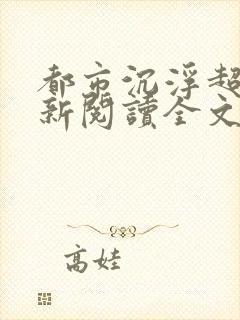 都市沉浮超
新閱讀全文
高娃